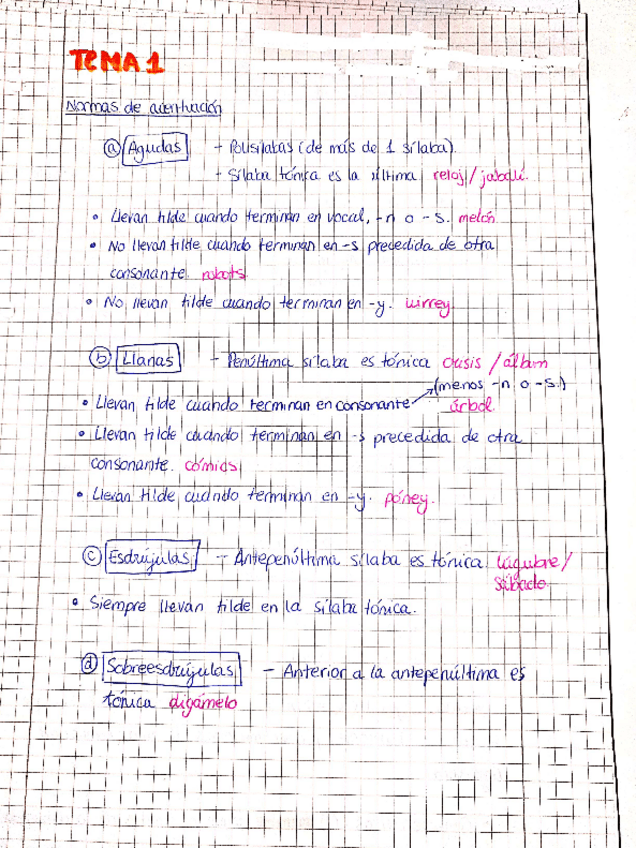 TEMA 1
Normas de acentuación
a) Agudas - Polisílabas (de más de 1 sílaba).
- Sílaba tónica es la última reloj / jabalí.
• Llevan tilde cuando terminan en vocal, -n o -s. melón
• No llevan tilde cuando terminan en -s precedida de otra
consonante. robots
• No llevan tilde cuando terminan en -y. virrey
b) Llanas - Penúltima sílaba es tónica oasis / álbum
(menos -n o -s.)
• Llevan tilde cuando terminan en consonante árbol.
• Llevan tilde cuando terminan en -s precedida de otra
consonante. cómics
• Llevan tilde cuando terminan en -y. póney.
c) Esdrújulas - Antepenúltima sílaba es tónica lúgubre /
sábado
• Siempre llevan tilde en la sílaba tónica.
d) Sobreesdrújulas - Anterior a la antepenúltima es
tónica digámelo